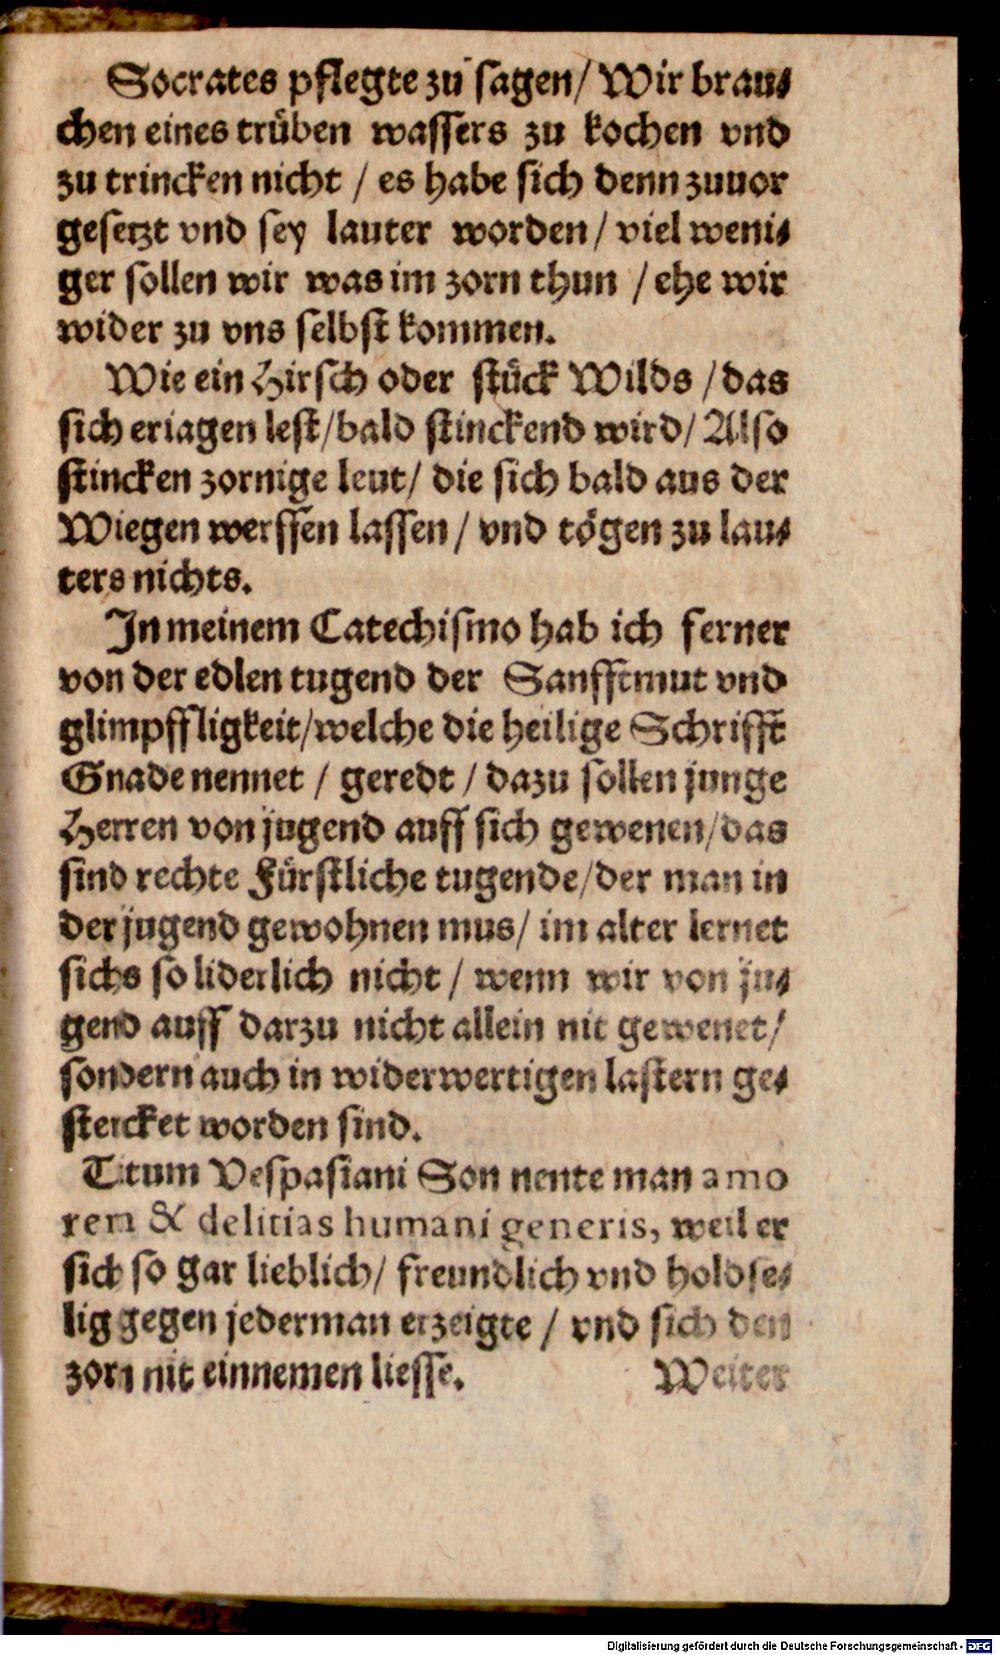 Socrates pflegte zu sagen/ Wir brau⸗
chen eines trüben wassers zu kochen vnd
zu trincken nicht / es habe sich denn zuuor
gesetzt vnd sey lauter worden / viel weni⸗
ger sollen wir was im zorn thun / ehe wir
wider zu vns selbst kommen.
Wie ein Hirsch oder stück Wilds / das
sich eriagen lest/bald stinckend wird/ Also
stincken zornige leut/ die sich bald aus der
Wiegen werffen lassen / vnd tögen zu lau⸗
ters nichts.
In meinem Catechismo hab ich ferner
von der edlen tugend der Sanfftmut vnd
glimpffligkeit/welche die heilige Schrifft
Gnade nennet / geredt / dazu sollen junge
Herren von jugend auff sich gewenen/das
sind rechte Fürstliche tugende/der man in
der jugend gewohnen mus/ im alter lernet
sichs so liderlich nicht / wenn wir von ju⸗
gend auff darzu nicht allein nit gewenet/
sondern auch in widerwertigen lastern ge⸗
stercket worden sind.
Titum Vespasiani Son nente man amo
rem & delitias humani generis, weil er
sich so gar lieblich/ freundlich vnd holdse⸗
lig gegen jederman erzeigte / vnd sich den
zorn nit einnemen liesse. Weiter
Digitalisierung gefördert durch die Deutsche Forschungsgemeinschaft - DFG